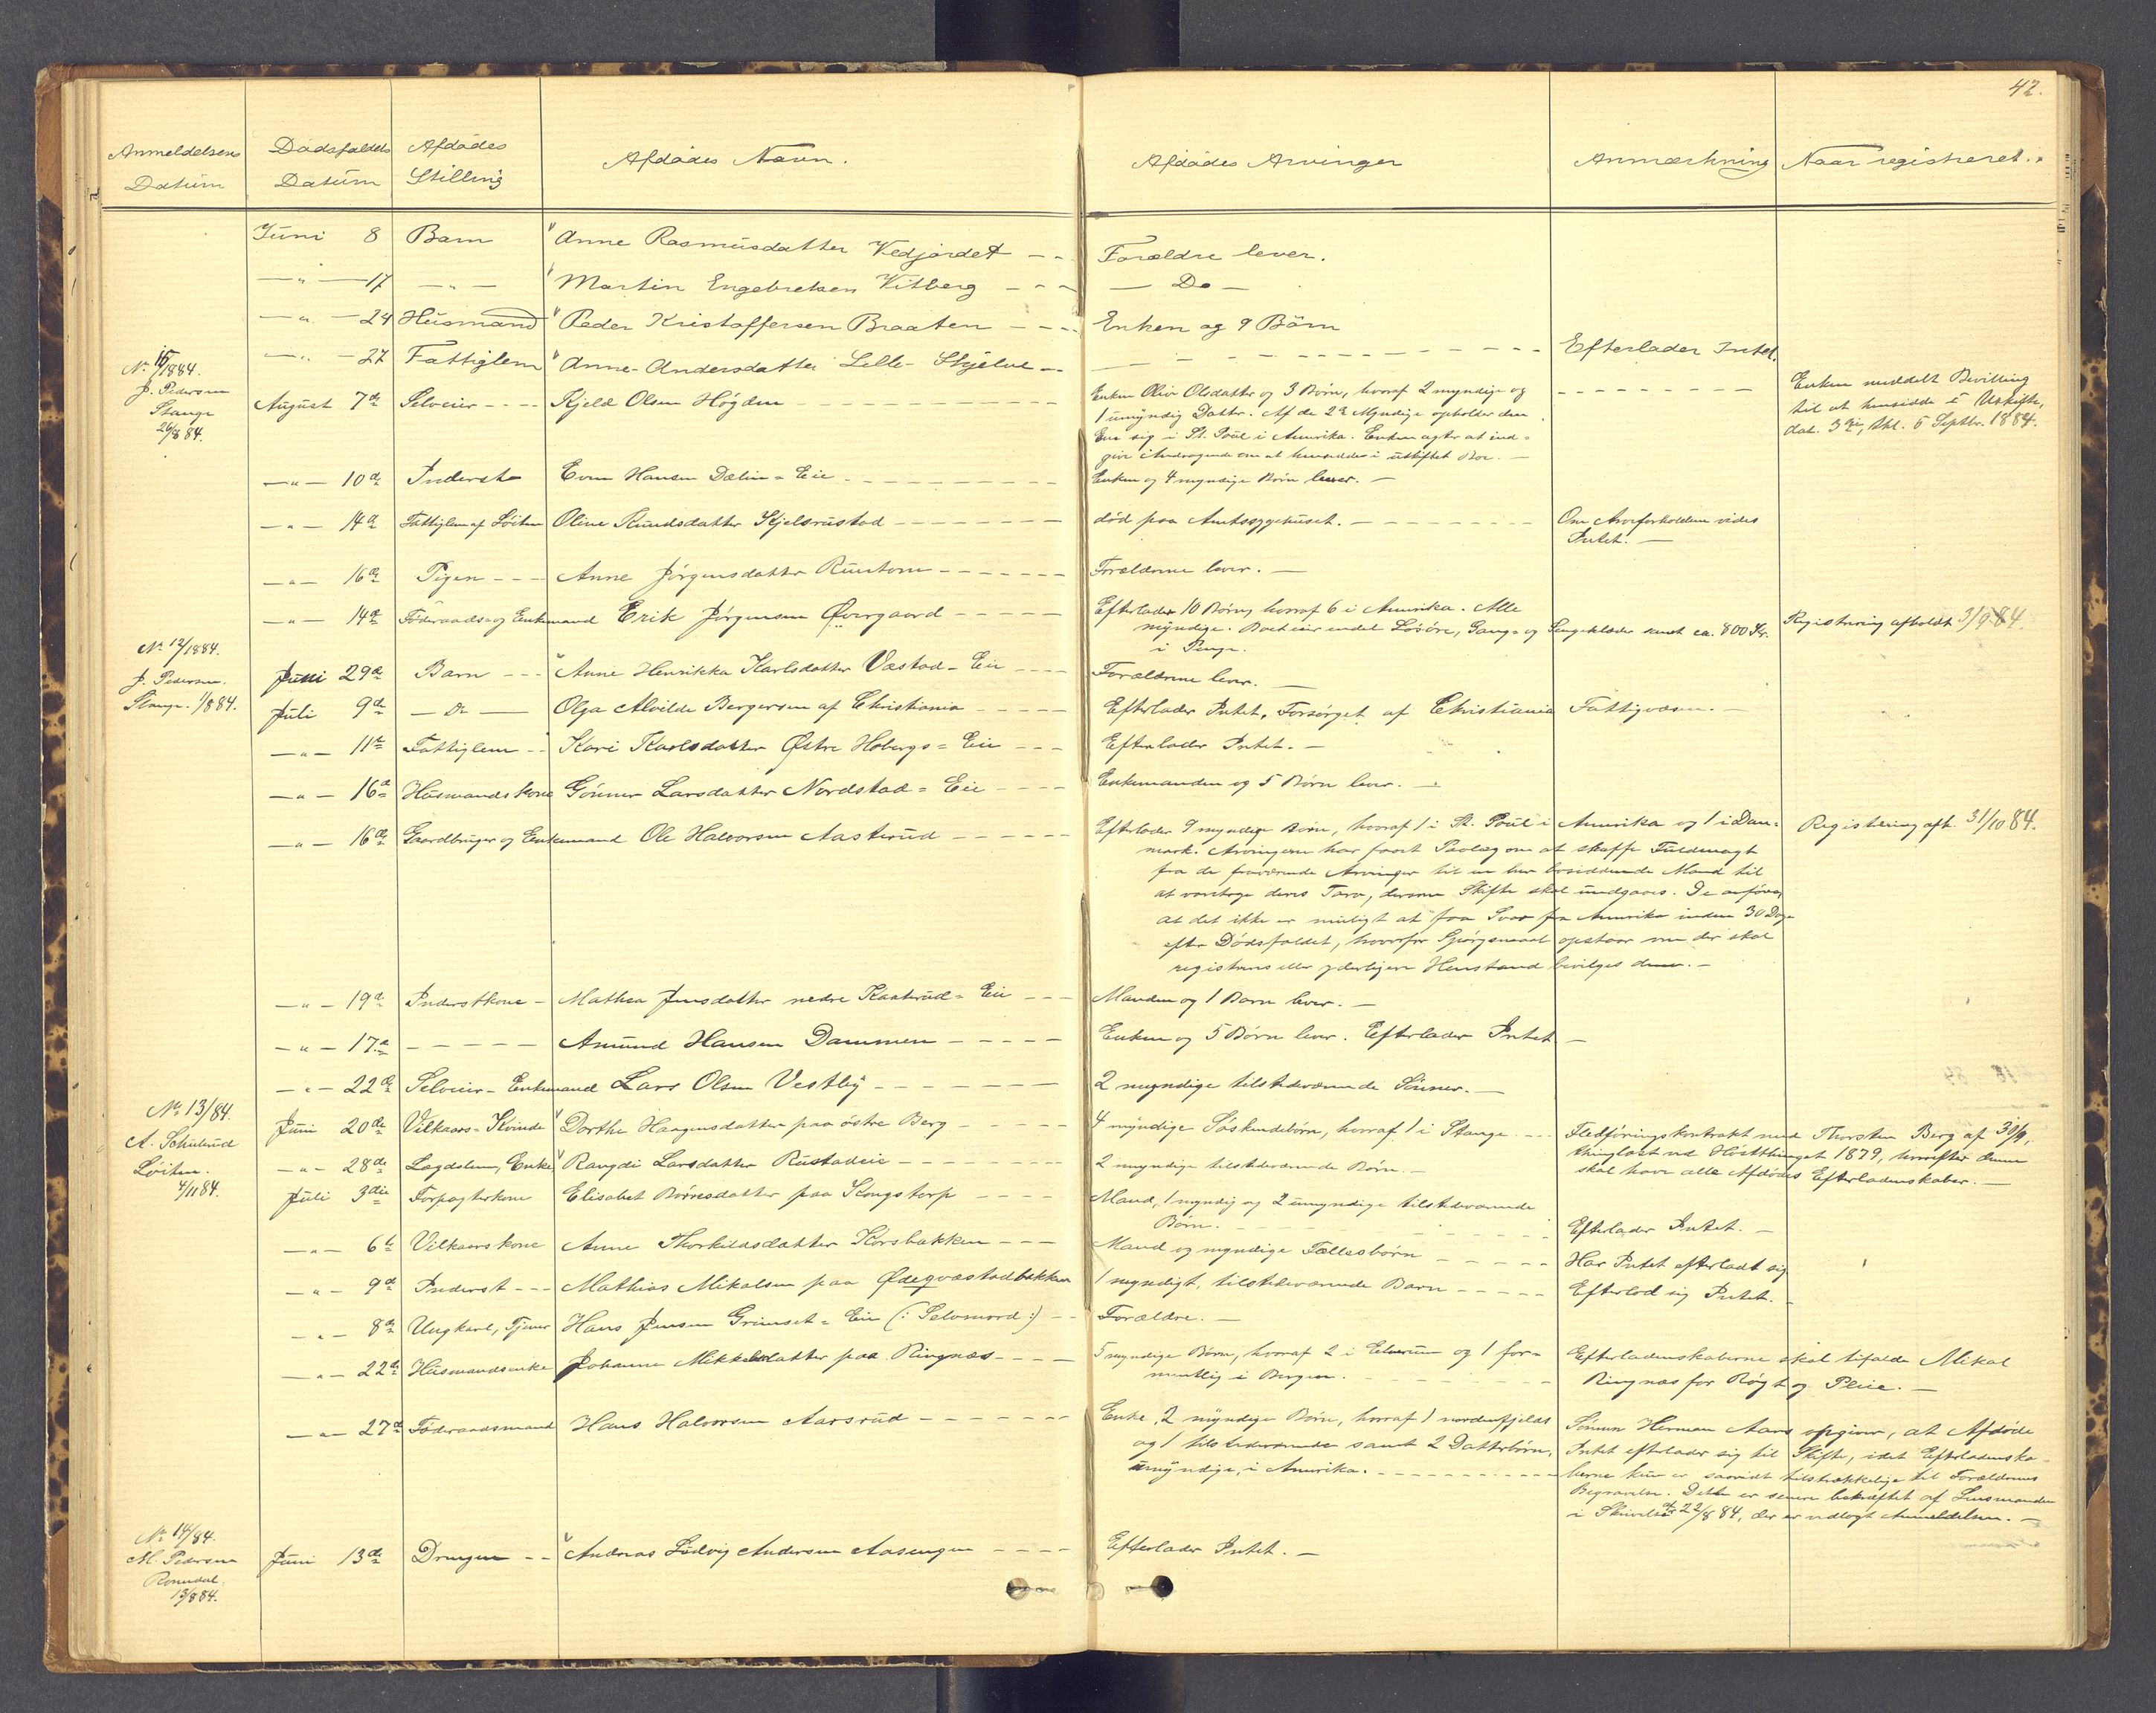 42.
Anmeldelsens Datum | Dødsfaldets Datum | Afdødes Stilling | Afdødes Navn. | Afdødes Arvinger | Anmærkning | Naar registreret.
Juni 8 | Barn | Anne Rasmusdatter Vedjordet | Forældre lever.
—„— 17 | —„— | Martin Engebretsen Vitberg | — Do —
—„— 24 | Husmand | Peder Kristoffersen Braaten | Enken og 9 Børn
—„— 27 | Fattiglem | Anne Andersdatter Lille-Skjelve | — | Efterlader Intet.
J. Pedersen
Stange
26/8 84.
August 7de | Selveier | Kjeld Olsen Høgden | Enken Oliv Olsdatter og 3 Børn, hvoraf 2 myndige og | Enken meddelt Bevilling
1 umyndig Datter. Af de 2de Myndige opholder den | til at hensidde i Uskifte,
Ene sig i St. Poul i Amerika. Enken agter at ind- | dat. 3die, thl. 5 Septbr. 1884.
give Andragende om at hensidde i uskiftet Bo. —
—„— 10de | Inderst | Even Hansen Dælin-Eie | Enken og 4 myndige Børn lever. —
—„— 14de | Fattiglem af Løiten | Oline Knudsdatter Kjelsrustad | død paa Amtssygehuset. — | Om Arveforholdene vides
Intet. —
—„— 16de | Pigen | Anne Jørgensdatter | Forældrene lever. —
—„— 14de | Føderaads- og Enkemand | Erik Jørgensen Øvergaard | Efterlader 10 Børn, hvoraf 6 i Amerika. Alle | Registrering afholdt 3/9 84.
myndige. Boet eier endel Løsøre, Gang- og Sengeklæder samt ca. 800 Kr.
i Penge.
No 12/1884.
J. Pedersen.
Stange. 1/8 84.
Juni 29de | Barn | Anne Henrikka Karlsdatter Væstad-Eie | Forældrene lever. —
Juli 9de | — Do — | Olga Alvilde Bergersen af Christiania | Efterlader Intet, Forsørget af Christiania Fattigvæsen. —
—„— 11te | Fattiglem | Kari Karlsdatter Østre Hobergs-Eie | Efterlader Intet. —
—„— 16de | Husmandskone | Gønner Larsdatter Nordstad-Eie | Enkemanden og 5 Børn lever. —
—„— 16de | Gaardbruger og Enkemand | Ole Halvorsen Aasterud | Efterlader 9 myndige Børn, hvoraf 1 i St. Poul i Amerika og 1 i Dan- | Registrering afh. 31/10 84.
mark. Arvingerne har faaet Paalæg om at skaffe Fuldmagt
fra de fraværende Arvinger til en her bosiddende Mand til
at varetage deres Tarv, dersom Skifte skal undgaaes. De anfører,
at det ikke er muligt at faa Svar fra Amerika inden 30 Dage
efter Dødsfaldet, hvorfor Spørgsmaal opstaar om der skal
registreres eller yderligere Henstand bevilges dem. —
—„— 19de | Inderstkone | Mathea Jensdatter nedre Kaaterud-Eie | Manden og 1 Barn lever. —
—„— 17de | — | Amund Hansen Dammen | Enken og 5 Børn lever. Efterlader Intet —
—„— 22de | Selveier-Enkemand | Lars Olsen Vestby | 2 myndige tilstedeværende Sønner. —
No 13/84.
A. Schulrud
Løiten.
4/11 84.
Juni 20de | Vilkaars-Kvinde | Dorthe Haagensdatter paa østre Berg | 4 myndige Søskendebørn, hvoraf 1 i Stange. | Fledføringskontrakt med Thorsten Berg af
thinglæst ved Høstthinget 1879, hvorefter denne
skal have alle Afdødes Efterladenskaber. —
—„— 28de | Lægdslem, Enke | Rangdi Larsdatter Rustadeie | 2 myndige tilstedeværende Børn. —
Juli 3die | Forpagterkone | Elisabet Børresdatter paa Kongstorp | Mand, 1 myndig og 2 umyndige tilstedeværende
Børn. | Efterlader Intet. —
—„— 6te | Vilkaarskone | Anne Thorkildsdatter Korsbakken | Mand og myndige Fællesbørn | Har Intet efterladt sig
—„— 9de | Inderst | Mathias Mikalsen paa Ødegvæstadbakken | 1 myndigt, tilstedeværende Barn | Efterlod sig Intet. —
—„— 8de | Ungkarl, Tjener | Hans Jensen Grimset-Eie (: Selvmord :) | Forældre. —
—„— 22de | Husmandsenke | Johanne Mikkelsdatter paa Ringnæs | 5 myndige Børn, hvoraf 2 i Elverum og 1 for- | Efterladenskaberne skal tilfalde Mikal
mentlig i Bergen. | Ringnæs for Røgt og Pleie. —
—„— 27de | Føderaadsmand | Hans Halvorsen Aarsrud | Enke, 2 myndige Børn, hvoraf 1 nordenfjelds | Sønnen Herman Aars opgiver, at Afdøde
og 1 tilstedeværende samt 2 Datterbørn, | Intet efterlader sig til Skifte, idet Efterladenska-
umyndige, i Amerika. | berne kun er saavidt tilstrækkelige til Forældrenes
Begravelse. Dette er senere bekræftet af Lensmanden
i Skrivelse af 22/8 84, der er vedlagt Anmeldelsen. —
No 14/84.
M. Pedersen
Romedal
13/8 84.
Juni 13de | Drengen | Andreas Ludvig Andersen Aasengen | Efterlader Intet. —